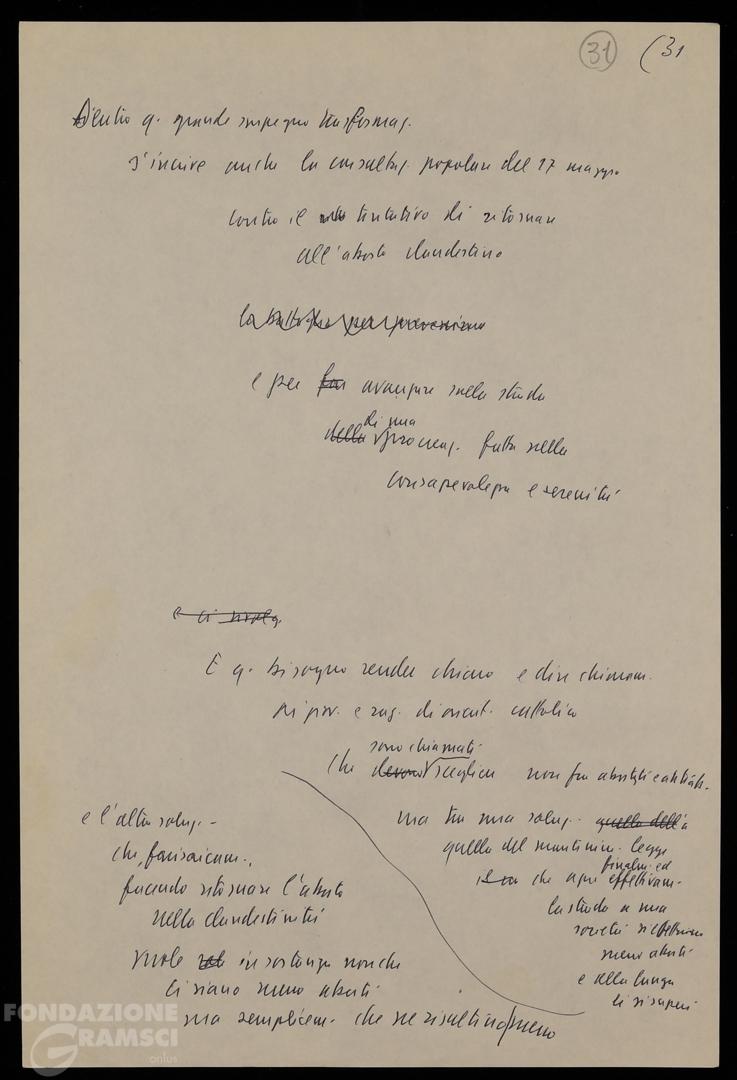 31 (31
Dentro q. grande impegno trasformaz.
s'inscrive anche la consultaz. popolare del 17 maggio
contro il tentativo di ritornare
all'aborto clandestino
la battaglia per prevenzione
e per avanzare sulla strada
di una
della procreaz. fatta nella
consapevolezza e serenità
e ci vuole
E q. bisogna render chiaro e dire chiaram.
ai giov. e rag. di orient. cattolico
sono chiamati
che devono scegliere non fra abortisti e antiab.
ma tra una soluz. quella della
quella del mantenim. legge
finalm. ed
che apre effettivam.
la strada a una
società si effettuino
meno aborti
e alla lunga
li si superi
e l'altra soluz.
che, farisaicam.,
facendo ritornare l'aborto
nella clandestinità
vuole in sostanza non che
ci siano meno aborti
ma semplicem. che ne risultino meno
FONDAZIONE
GRAMSCI
onlus